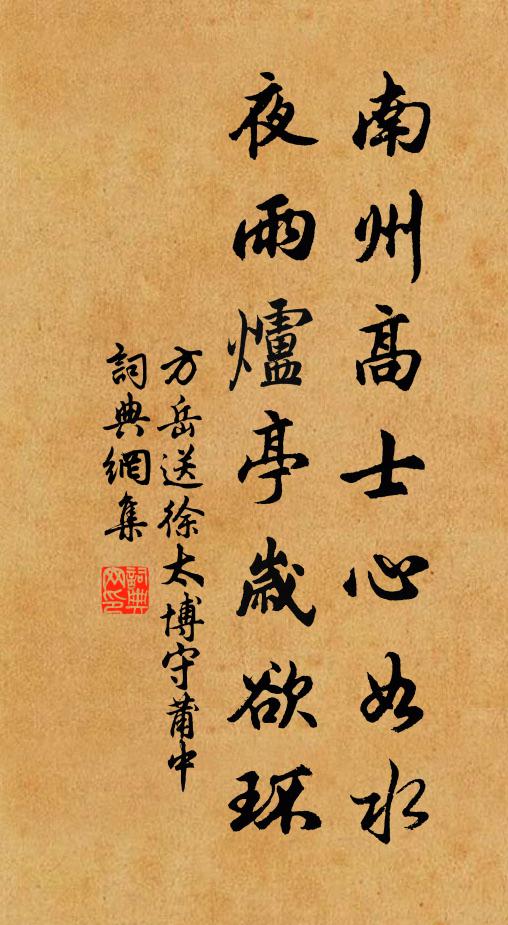 南州高士心如水
夜雨爐亭歲欲環
方岳送徐太博守莆中
詞典網集
詞典网印